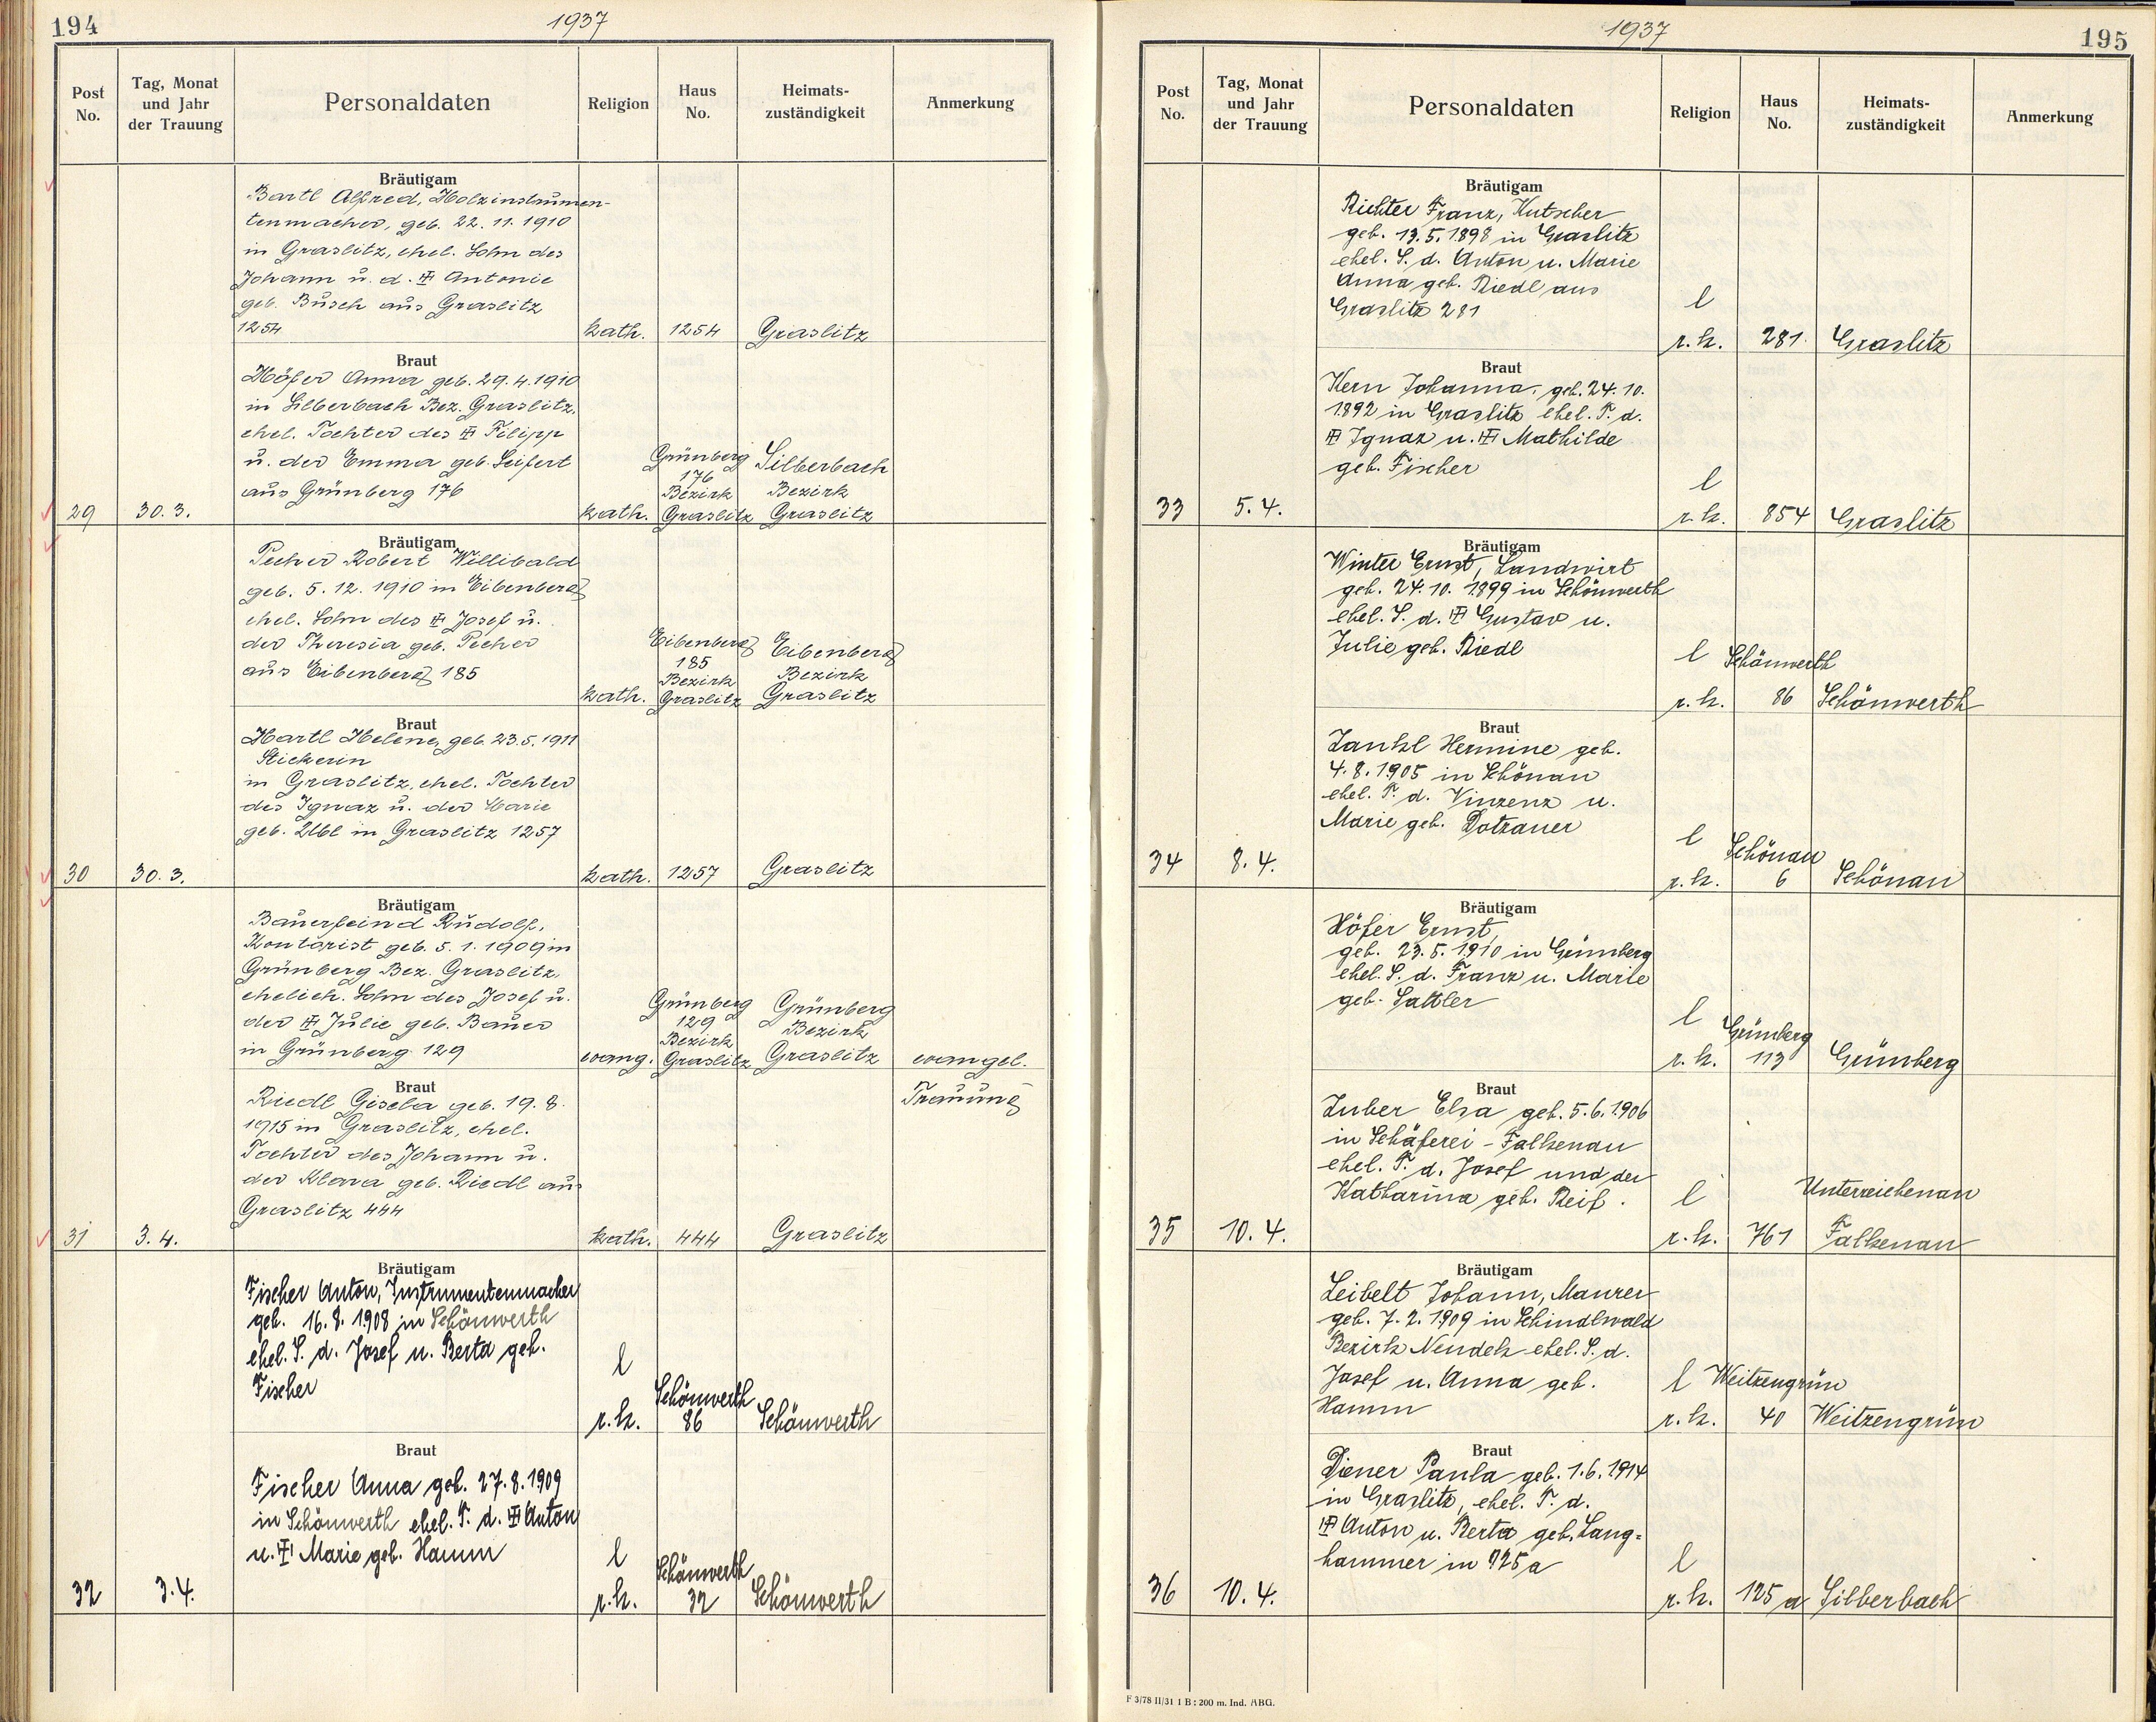 194
1937
Post No.
Tag, Monat und Jahr der Trauung
Personaldaten
Religion
Haus No.
Heimats-zuständigkeit
Anmerkung
Bräutigam
Bartl Alfred, Holzinstrumen-
tenmacher, geb. 22. 11. 1910
in Graslitz, ehel. Sohn des
Johann u. d. Antonie
geb. Büsch aus Graslitz
1254
kath. 1254 Graslitz
Braut
Höfer Anna geb. 29. 4. 1910
in Silberbach Bez. Graslitz,
ehel. Tochter des Filipp
u. der Emma geb. Seifert
aus Grünberg 176
Grünberg Silberbach
176
Bezirk Bezirk
29 30. 3. kath. Graslitz Graslitz
Bräutigam
Pecher Robert Willibald
geb. 5. 12. 1910 in Eibenberg
ehel. Sohn des Josef u.
der Theresia geb. Pecher
aus Eibenberg 185
Eibenberg Eibenberg
185
Bezirk Bezirk
kath. Graslitz Graslitz
Braut
Hartl Helene, geb. 23. 5. 1911
Stickerin
in Graslitz, ehel. Tochter
des Ignaz u. der Marie
geb. in Graslitz 1257
30 30. 3. kath. 1257 Graslitz
Bräutigam
Bauerfeind Rudolf,
Kontorist geb. 5. 1. 1909 in
Grünberg Bez. Graslitz,
ehelich. Sohn des Josef u.
der Julie geb. Bauer
in Grünberg 129
Grünberg Grünberg
129
Bezirk Bezirk
evang. Graslitz Graslitz evangel.
Trauung
Braut
Riedl Gisela geb. 19. 8.
1915 in Graslitz, ehel.
Tochter des Johann u.
der Klara geb. Riedl aus
Graslitz 444
31 3. 4. kath. 444 Graslitz
Bräutigam
Fischer Anton, Instrumentenmacher
geb. 16. 8. 1908 in Schönwerth
ehel. S. d. Josef u. Berta geb.
Fischer
l
Schönwerth
r. k. 86 Schönwerth
Braut
Fischer Anna geb. 27. 8. 1909
in Schönwerth ehel. T. d. Anton
u. Marie geb. Hamm
l
Schönwerth
32 3. 4. r. k. 32 Schönwerth
1937
195
Post No.
Tag, Monat und Jahr der Trauung
Personaldaten
Religion
Haus No.
Heimats-zuständigkeit
Anmerkung
Bräutigam
Richter Franz, Kutscher
geb. 13. 5. 1898 in Graslitz
ehel. S. d. Anton u. Marie
Anna geb. Riedl aus
Graslitz 281
l
r. k. 281 Graslitz
Braut
Kern Johanna, geb. 24. 10.
1892 in Graslitz ehel. T. d.
Ignaz u. Mathilde
geb. Fischer
l
33 5. 4. r. k. 854 Graslitz
Bräutigam
Winter Ernst, Landwirt
geb. 24. 10. 1899 in Schönwerth
ehel. S. d. Gustav u.
Julie geb. Riedl
l Schönwerth
r. k. 86 Schönwerth
Braut
Zankl Hermine geb.
4. 8. 1905 in Schönau
ehel. T. d. Vinzenz u.
Marie geb. Dotzauer
l
Schönau
34 8. 4. r. k. 6 Schönau
Bräutigam
Höfer Ernst,
geb. 23. 5. 1910 in Grünberg
ehel. S. d. Franz u. Marie
geb. Sattler
l
Grünberg
r. k. 113 Grünberg
Braut
Zuber Elsa geb. 5. 6. 1906
in Schäferei - Falkenau
ehel. T. d. Josef und der
Katharina geb. Reif.
l Unterreichenau
35 10. 4. r. k. 761 Falkenau
Bräutigam
Leibelt Johann, Maurer
geb. 7. 2. 1909 in Schindlwald
Bezirk Neudek ehel. S. d.
Josef u. Anna geb.
Hamm
l Weitzengrün
r. k. 40 Weitzengrün
Braut
Diener Paula geb. 1. 6. 1914
in Graslitz, ehel. T. d.
Anton u. Berta geb. Lang=
hammer in 125 a
l
36 10. 4. r. k. 125 a Silberbach
F 3/78 II/31 1 B : 200 m. Ind. ABG.